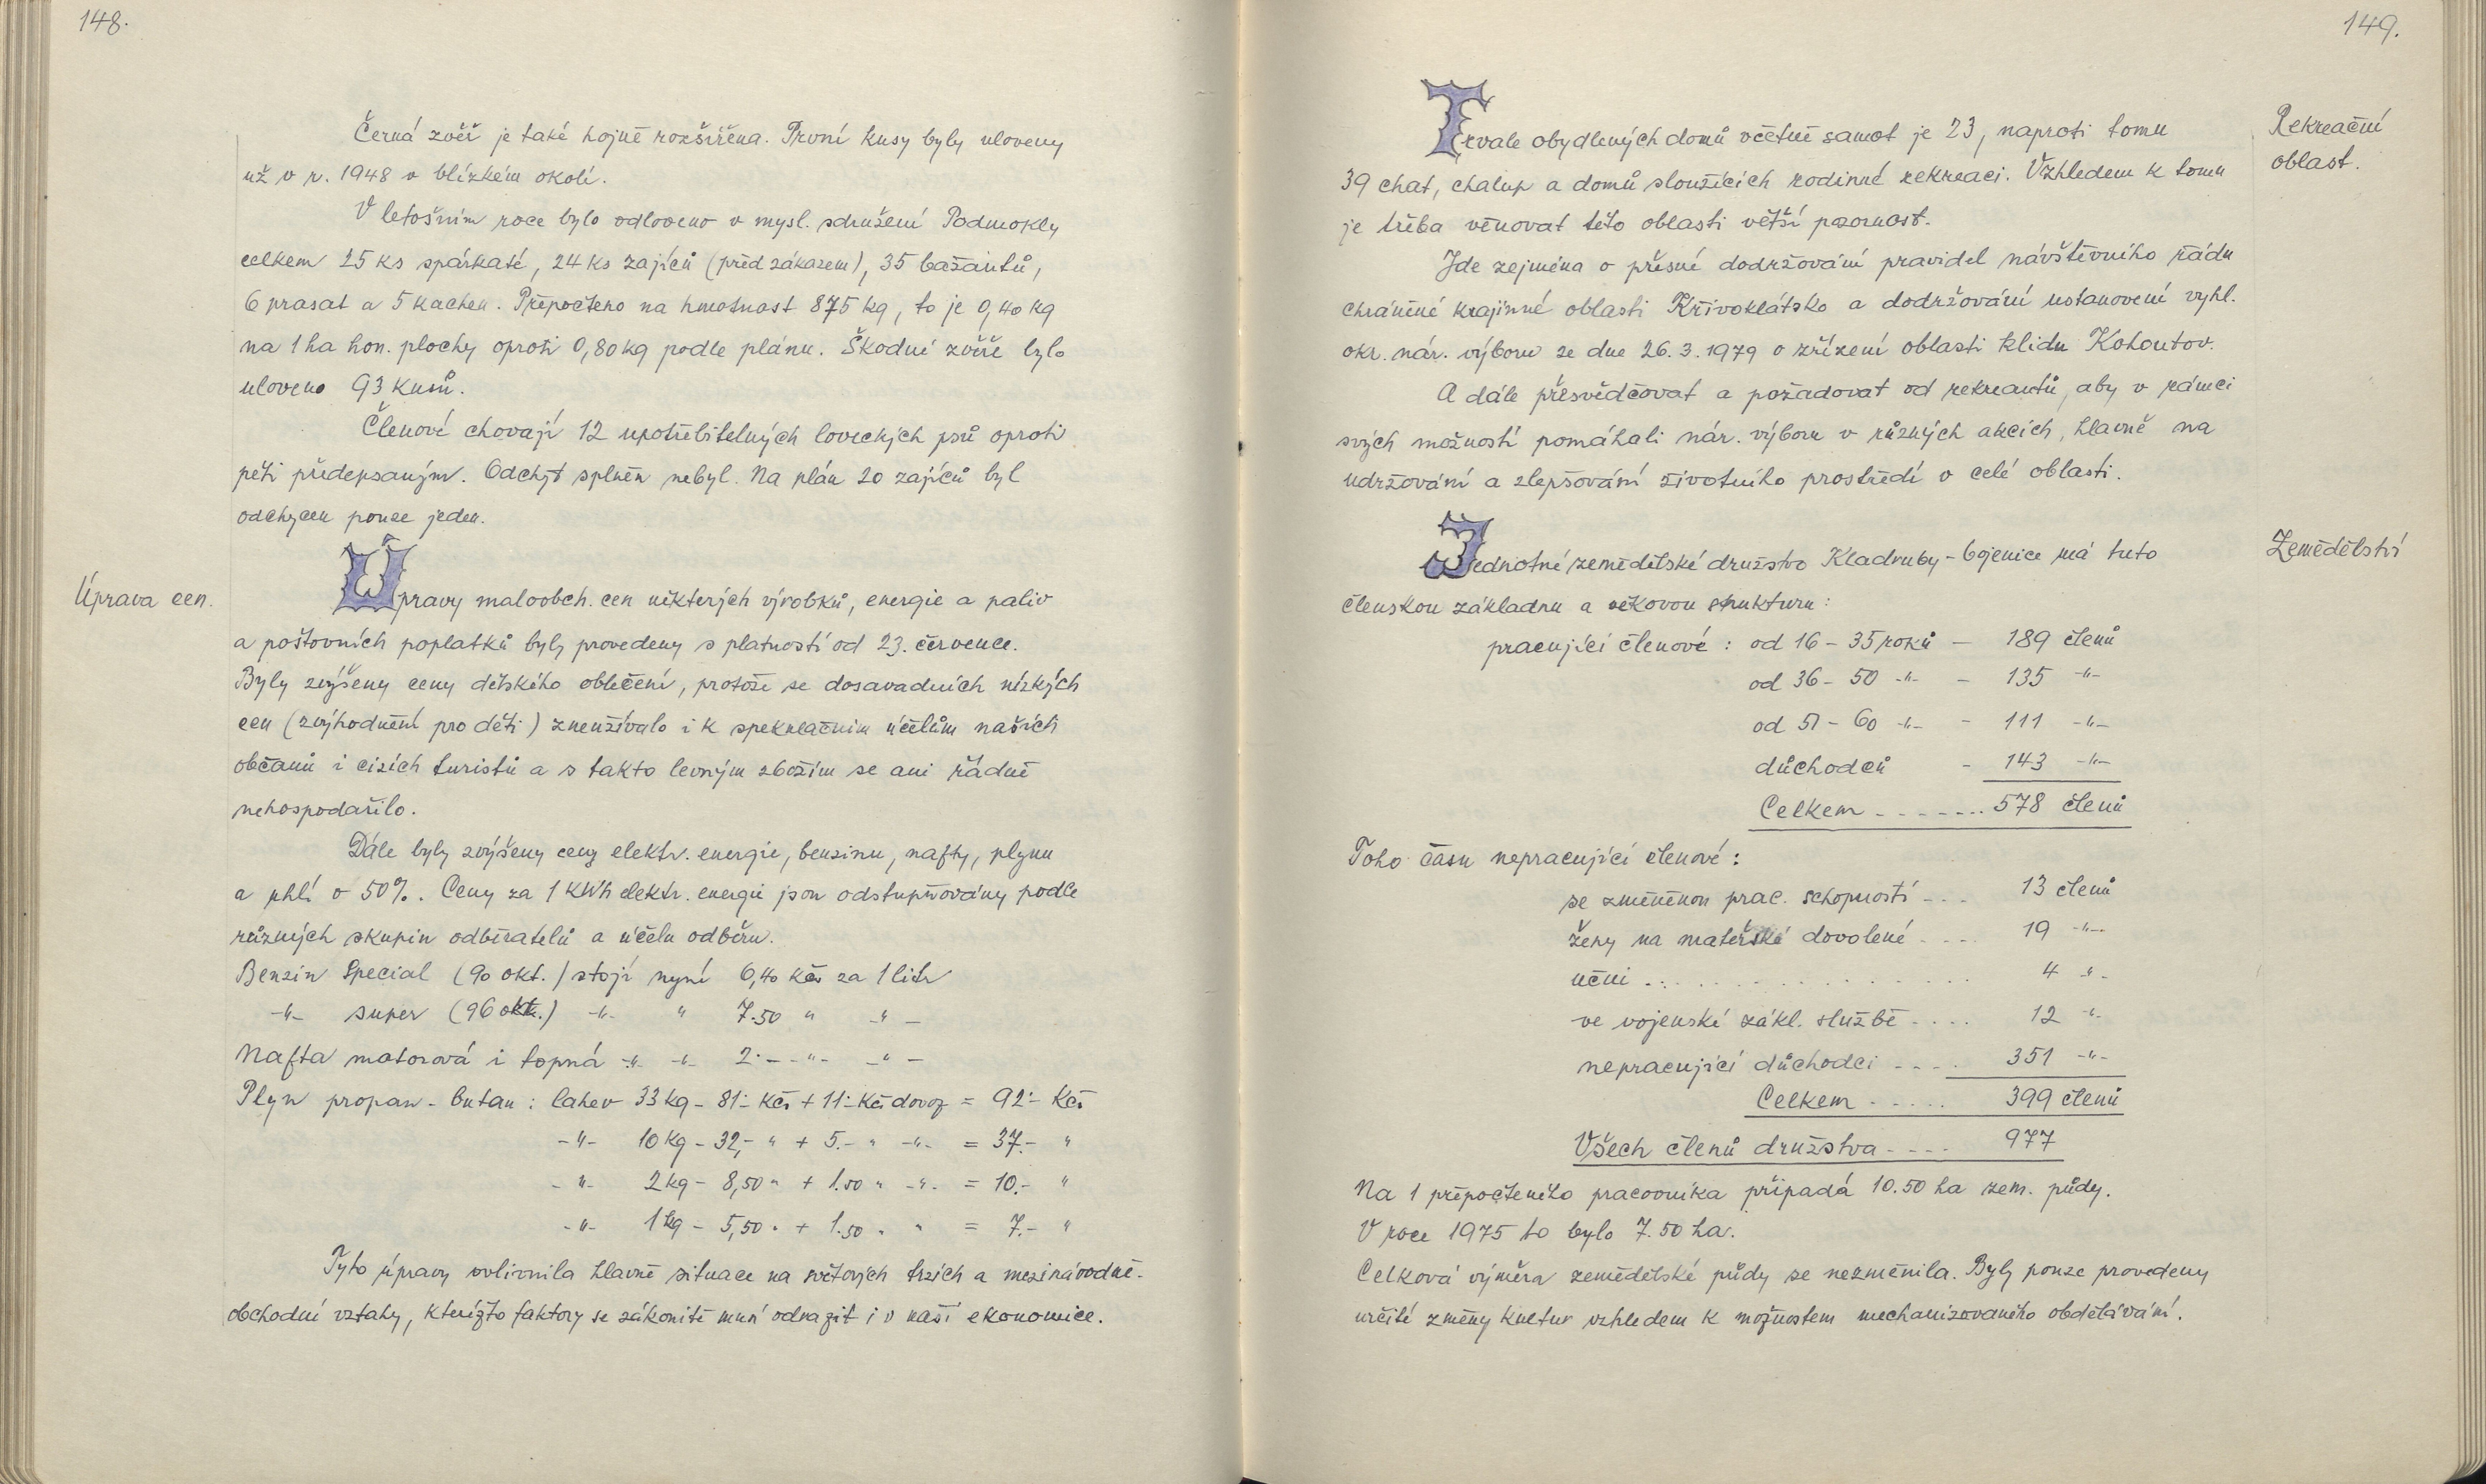 148.
Černá zvěř je také hojně rozšířena. První kusy byly uloveny
už v r. 1948 v blízkém okolí.
V letošním roce bylo odloveno v mysl. sdružení Podmokly
celkem 25 ks spárkaté, 24 ks zajíců (před zákazem), 35 bažantů,
6 prasat a 5 kachen. Přepočteno na hmotnost 875 kg, to je 0,40 kg
na 1 ha hon. plochy oproti 0,80 kg podle plánu. Škodné zvěře bylo
uloveno 93 kusů.
Členové chovají 12 upotřebitelných loveckých psů oproti
pěti předepsaným. Odchyt splněn nebyl. Na plán 20 zajíců byl
odchycen pouze jeden.
Úprava cen.
Úpravy maloobch. cen některých výrobků, energie a paliv
a poštovních poplatků byly provedeny s platností od 23. července.
Byly zvýšeny ceny dětského oblečení, protože se dosavadních nízkých
cen (zvýhodnění pro děti) zneužívalo i k spekulačním účelům našich
občanů i cizích turistů a s takto levným zbožím se ani řádně
nehospodařilo.
Dále byly zvýšeny ceny elektr. energie, benzinu, nafty, plynu
a uhlí o 50%. Ceny za 1 kWh elektr. energie jsou odstupňovány podle
různých skupin odběratelů a účelu odběru.
Benzin Special (90 okt.) stojí nyní 6,40 Kčs za 1 litr
-"- super (96 okt.) -"- " 7.50 " -"-
Nafta motorová i topná -"- -"- 2.- -"- -"-
Plyn propan-butan: lahev 33 kg - 81.- Kčs + 11.- Kčs dovoz = 92.- Kčs
-"- 10 kg - 32,- " + 5.- " -"- = 37.- "
-"- 2 kg - 8,50 " + 1.50 " -"- = 10.- "
-"- 1 kg - 5,50 " + 1.50 " " = 7.- "
Tyto úpravy ovlivnila hlavně situace na světových trzích a mezinárodně-
obchodní vztahy, kterížto faktory se zákonitě musí odrazit i v naší ekonomice.
149.
Rekreační
oblast.
Trvale obydlených domů včetně samot je 23, naproti tomu
39 chat, chalup a domů sloužících rodinné rekreaci. Vzhledem k tomu
je třeba věnovat této oblasti větší pozornost.
Jde zejména o přesné dodržování pravidel návštěvního řádu
chráněné krajinné oblasti Křivoklátsko a dodržování ustanovení vyhl.
okr. nár. výboru ze dne 26.3.1979 o zřízení oblasti klidu Kohoutov.
A dále přesvědčovat a požadovat od rekreantů, aby v rámci
svých možností pomáhali nár. výboru v různých akcích, hlavně na
udržování a zlepšování životního prostředí v celé oblasti.
Zemědělství
Jednotné zemědělské družstvo Kladruby-Bojenice má tuto
členskou základnu a věkovou strukturu:
pracující členové: od 16 - 35 roků - 189 členů
od 36 - 50 -"- - 135 -"-
od 51 - 60 -"- - 111 -"-
důchodců - 143 -"-
Celkem -------- 578 členů
Toho času nepracující členové:
se změněnou prac. schopností --- 13 členů
ženy na mateřské dovolené ---- 19 -"-
učni ................ 4 -"-
ve vojenské zákl. službě .... 12 -"-
nepracující důchodci ---- 351 -"-
Celkem ..... 399 členů
Všech členů družstva ---- 977
Na 1 přepočteného pracovníka připadá 10.50 ha zem. půdy.
V roce 1975 to bylo 7.50 ha.
Celková výměra zemědělské půdy se nezměnila. Byly pouze provedeny
určité změny kultur vzhledem k možnostem mechanizovaného obdělávání.